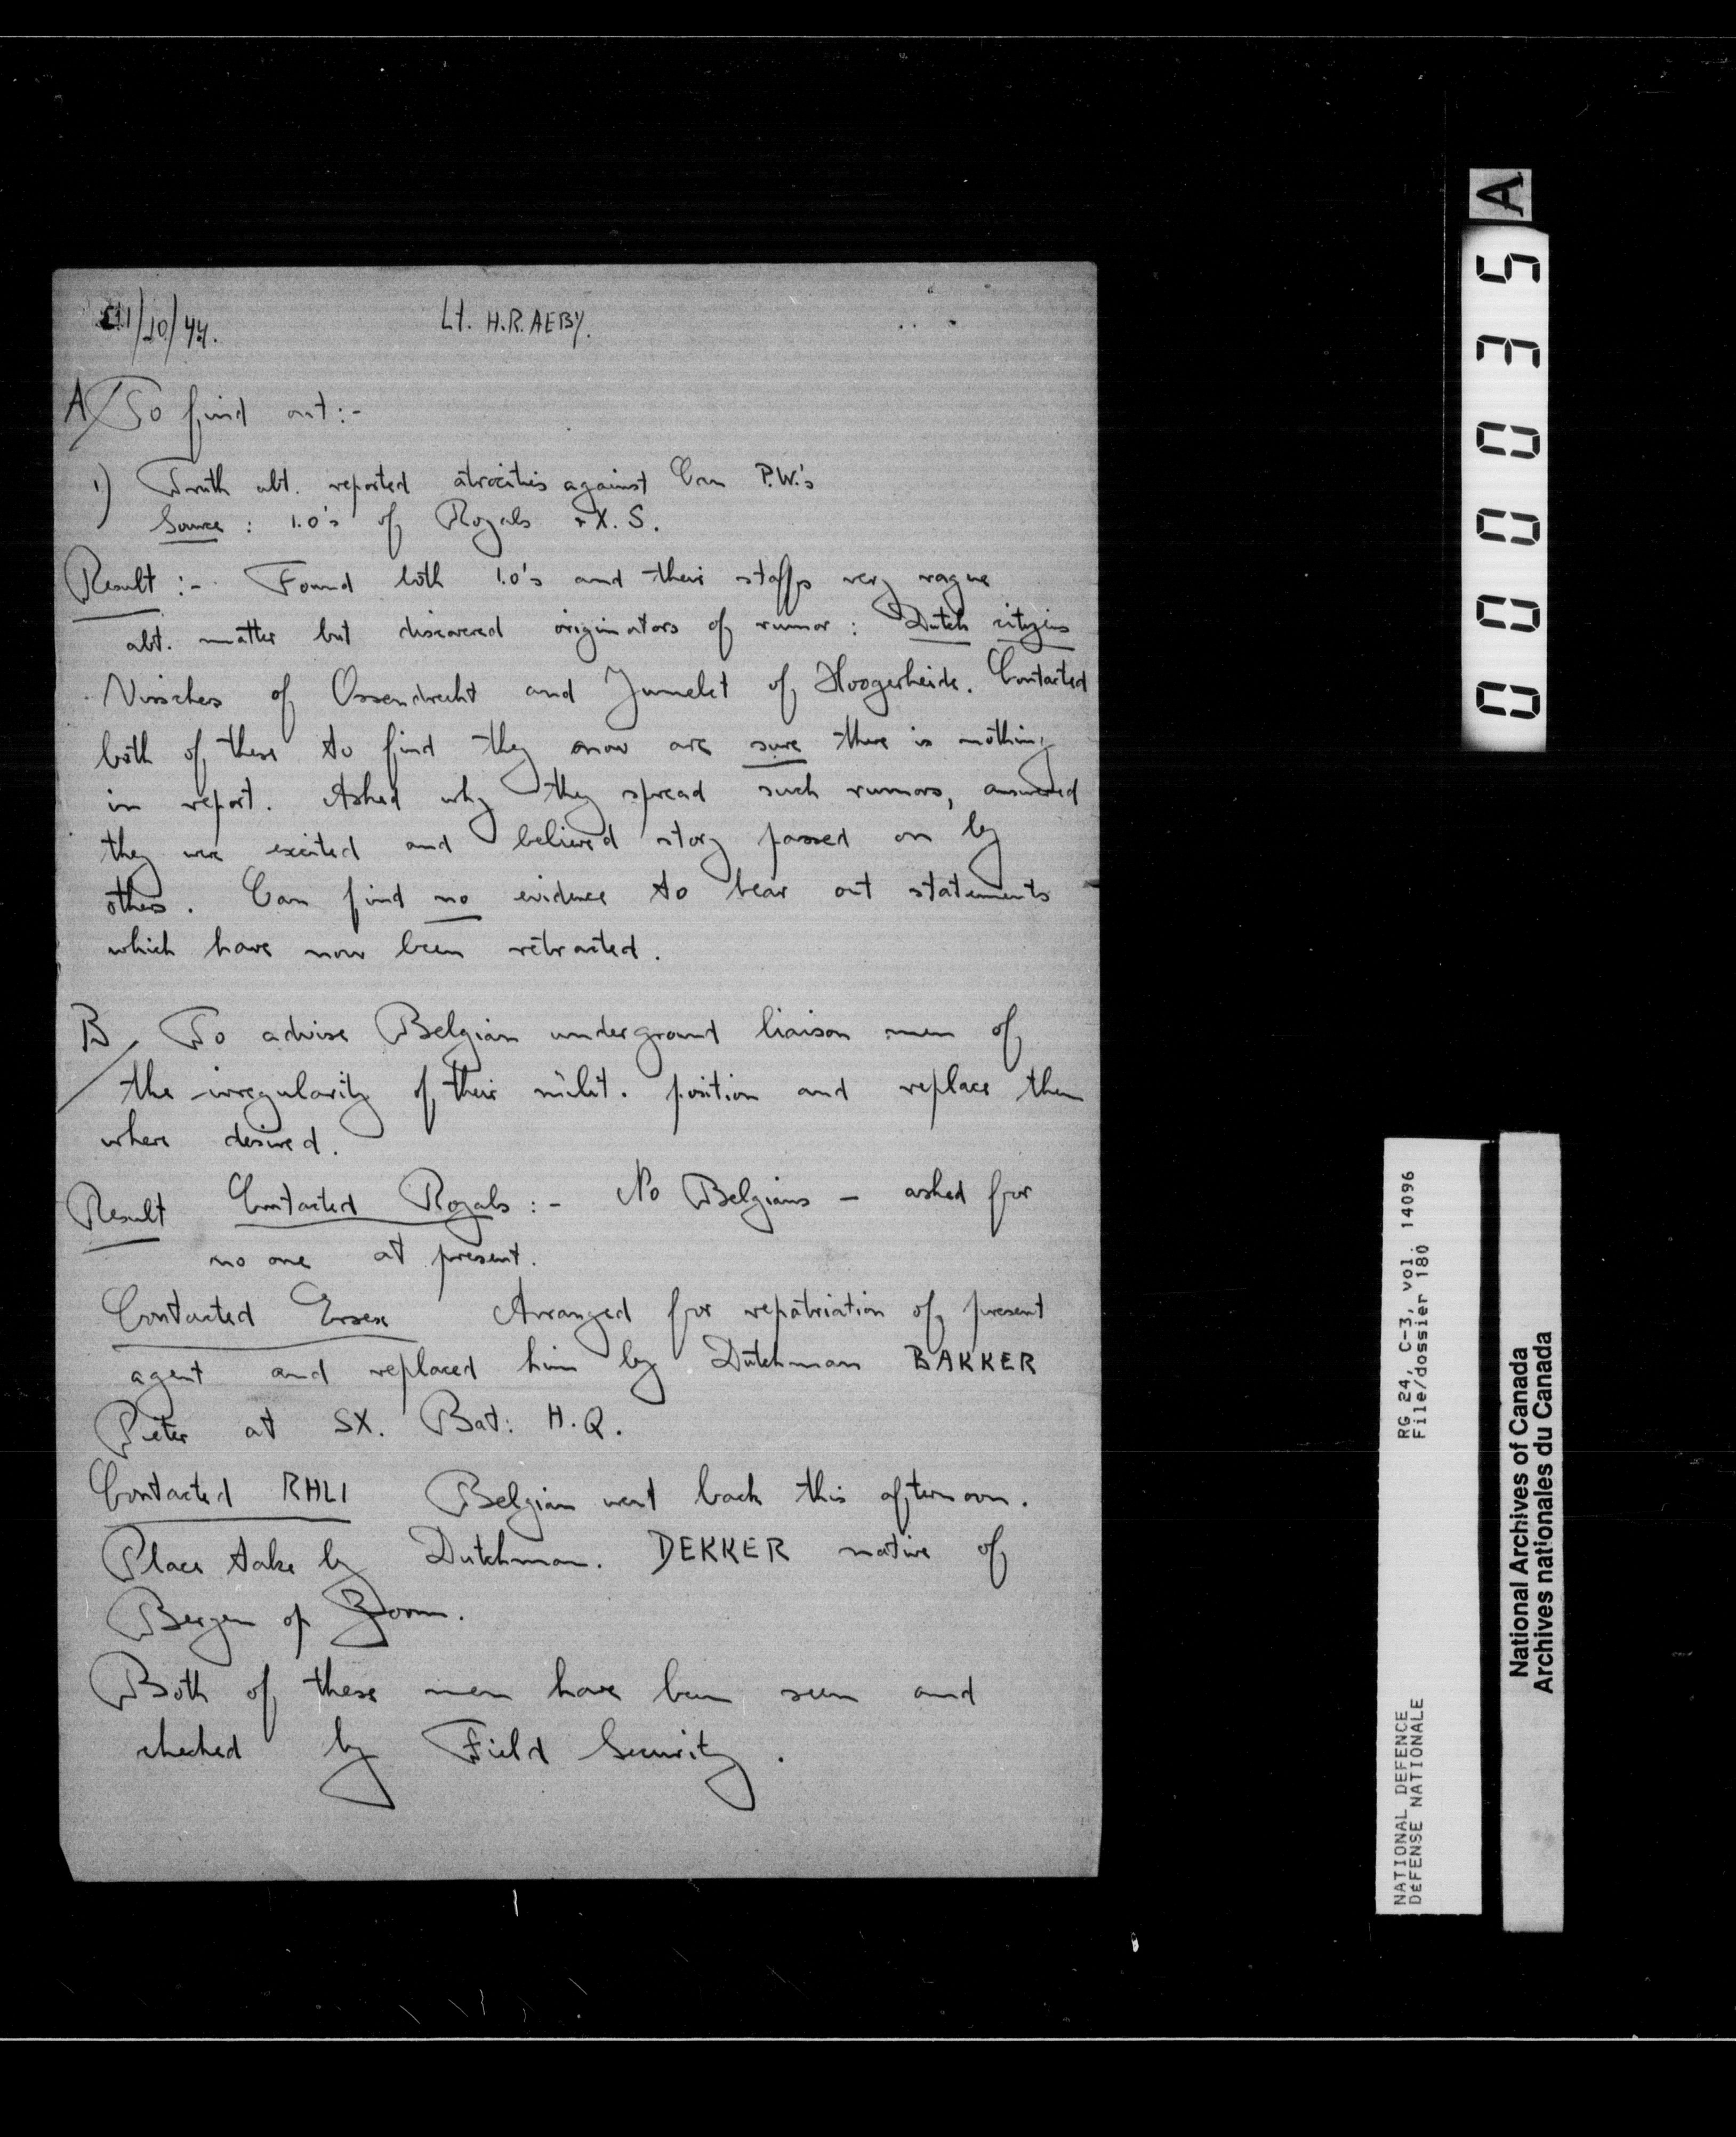 11/10/44.
Lt. H.R. AEBY.
A/ To find out:-
1) Truth abt. reported atrocities against Can P.W.'s
Source : I.O's of Royals + X. S.
Result :- Found both I.O's and their staffs very vague
abt. matter but discovered originators of rumor : Dutch citizens
Visschers of Ossendrecht and Jumelet of Hoogerheide. Contacted
both of these to find they now are sure there is nothing
in report. Asked why they spread such rumors, answered
they were excited and believed story passed on by
others. Can find no evidence to bear out statements
which have now been retracted.
B/ To advise Belgian underground liaison men of
the irregularity of their milit. position and replace them
where desired.
Result Contacted Royals :- No Belgians - asked for
no one at present.
Contacted Essex Arranged for repatriation of present
agent and replaced him by Dutchman BAKKER
Pieter at SX. Bat: H.Q.
Contacted RHLI Belgian went back this afternoon.
Place take by Dutchman. DEKKER native of
Bergen op Zoom.
Both of these men have been seen and
checked by Field Security.
A
000035
RG 24, C-3, vol. 14096
File/dossier 180
NATIONAL DEFENCE
DÉFENSE NATIONALE
National Archives of Canada
Archives nationales du Canada